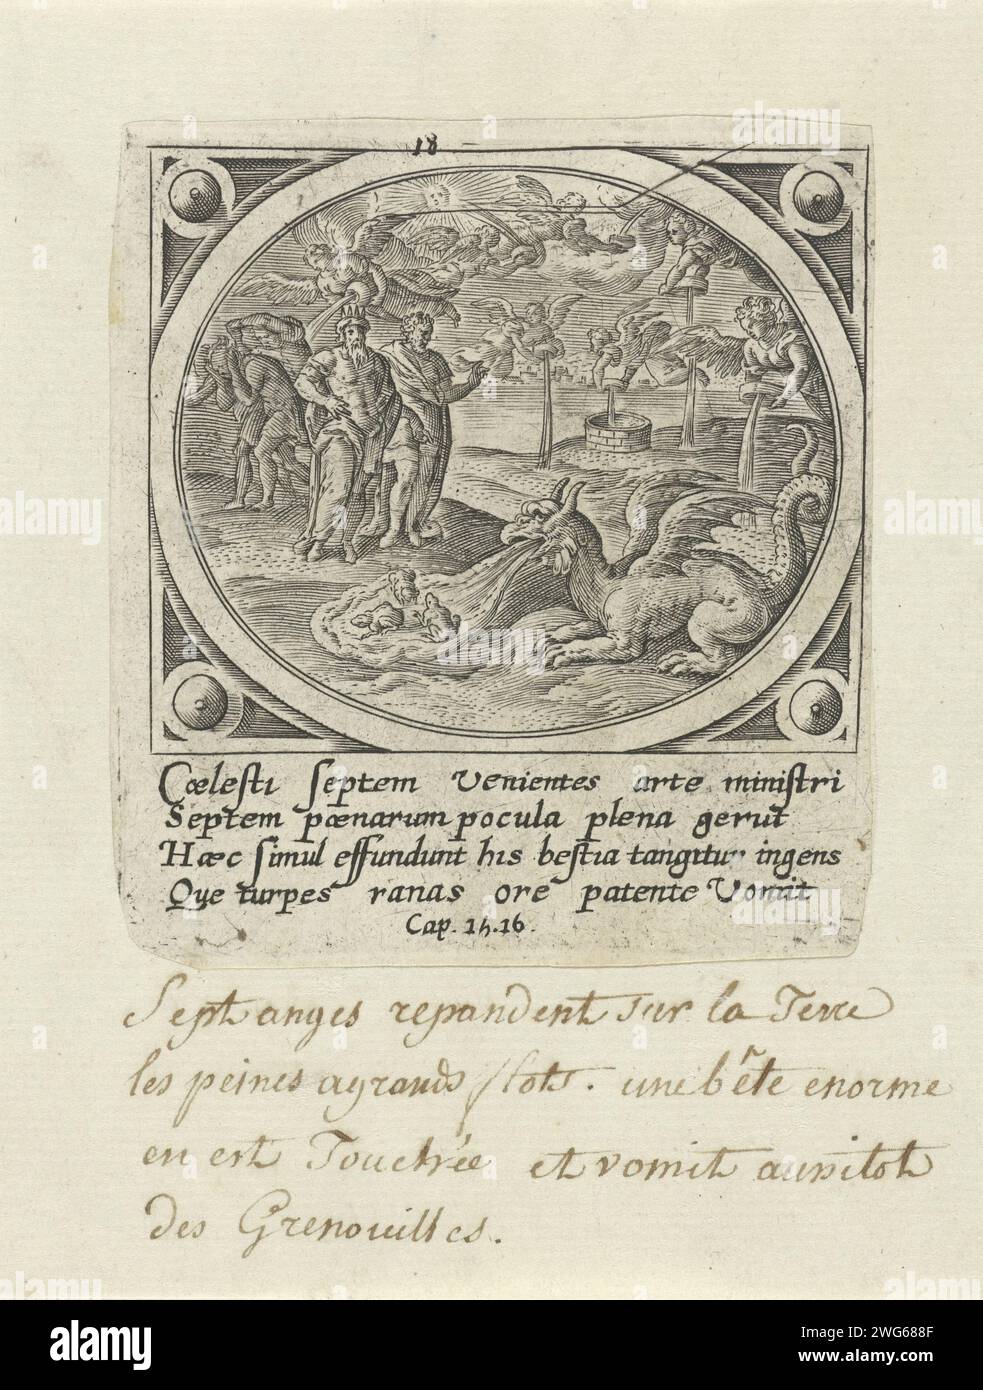 18
Cœlesti septem venientes arte ministri
Septem pœnarum pocula plena gerut
Hæc simul effundunt his bestia tangitur ingens
Que turpes ranas ore patente vomit
Cap. 15.16.
Sept anges repandent sur la Terre
les peines a grands flots. une bête enorme
en est Touchée et vomit aussitot
des Grenouilles.
alamy
alamy
www.alamy.com
Image ID: 2WG688F